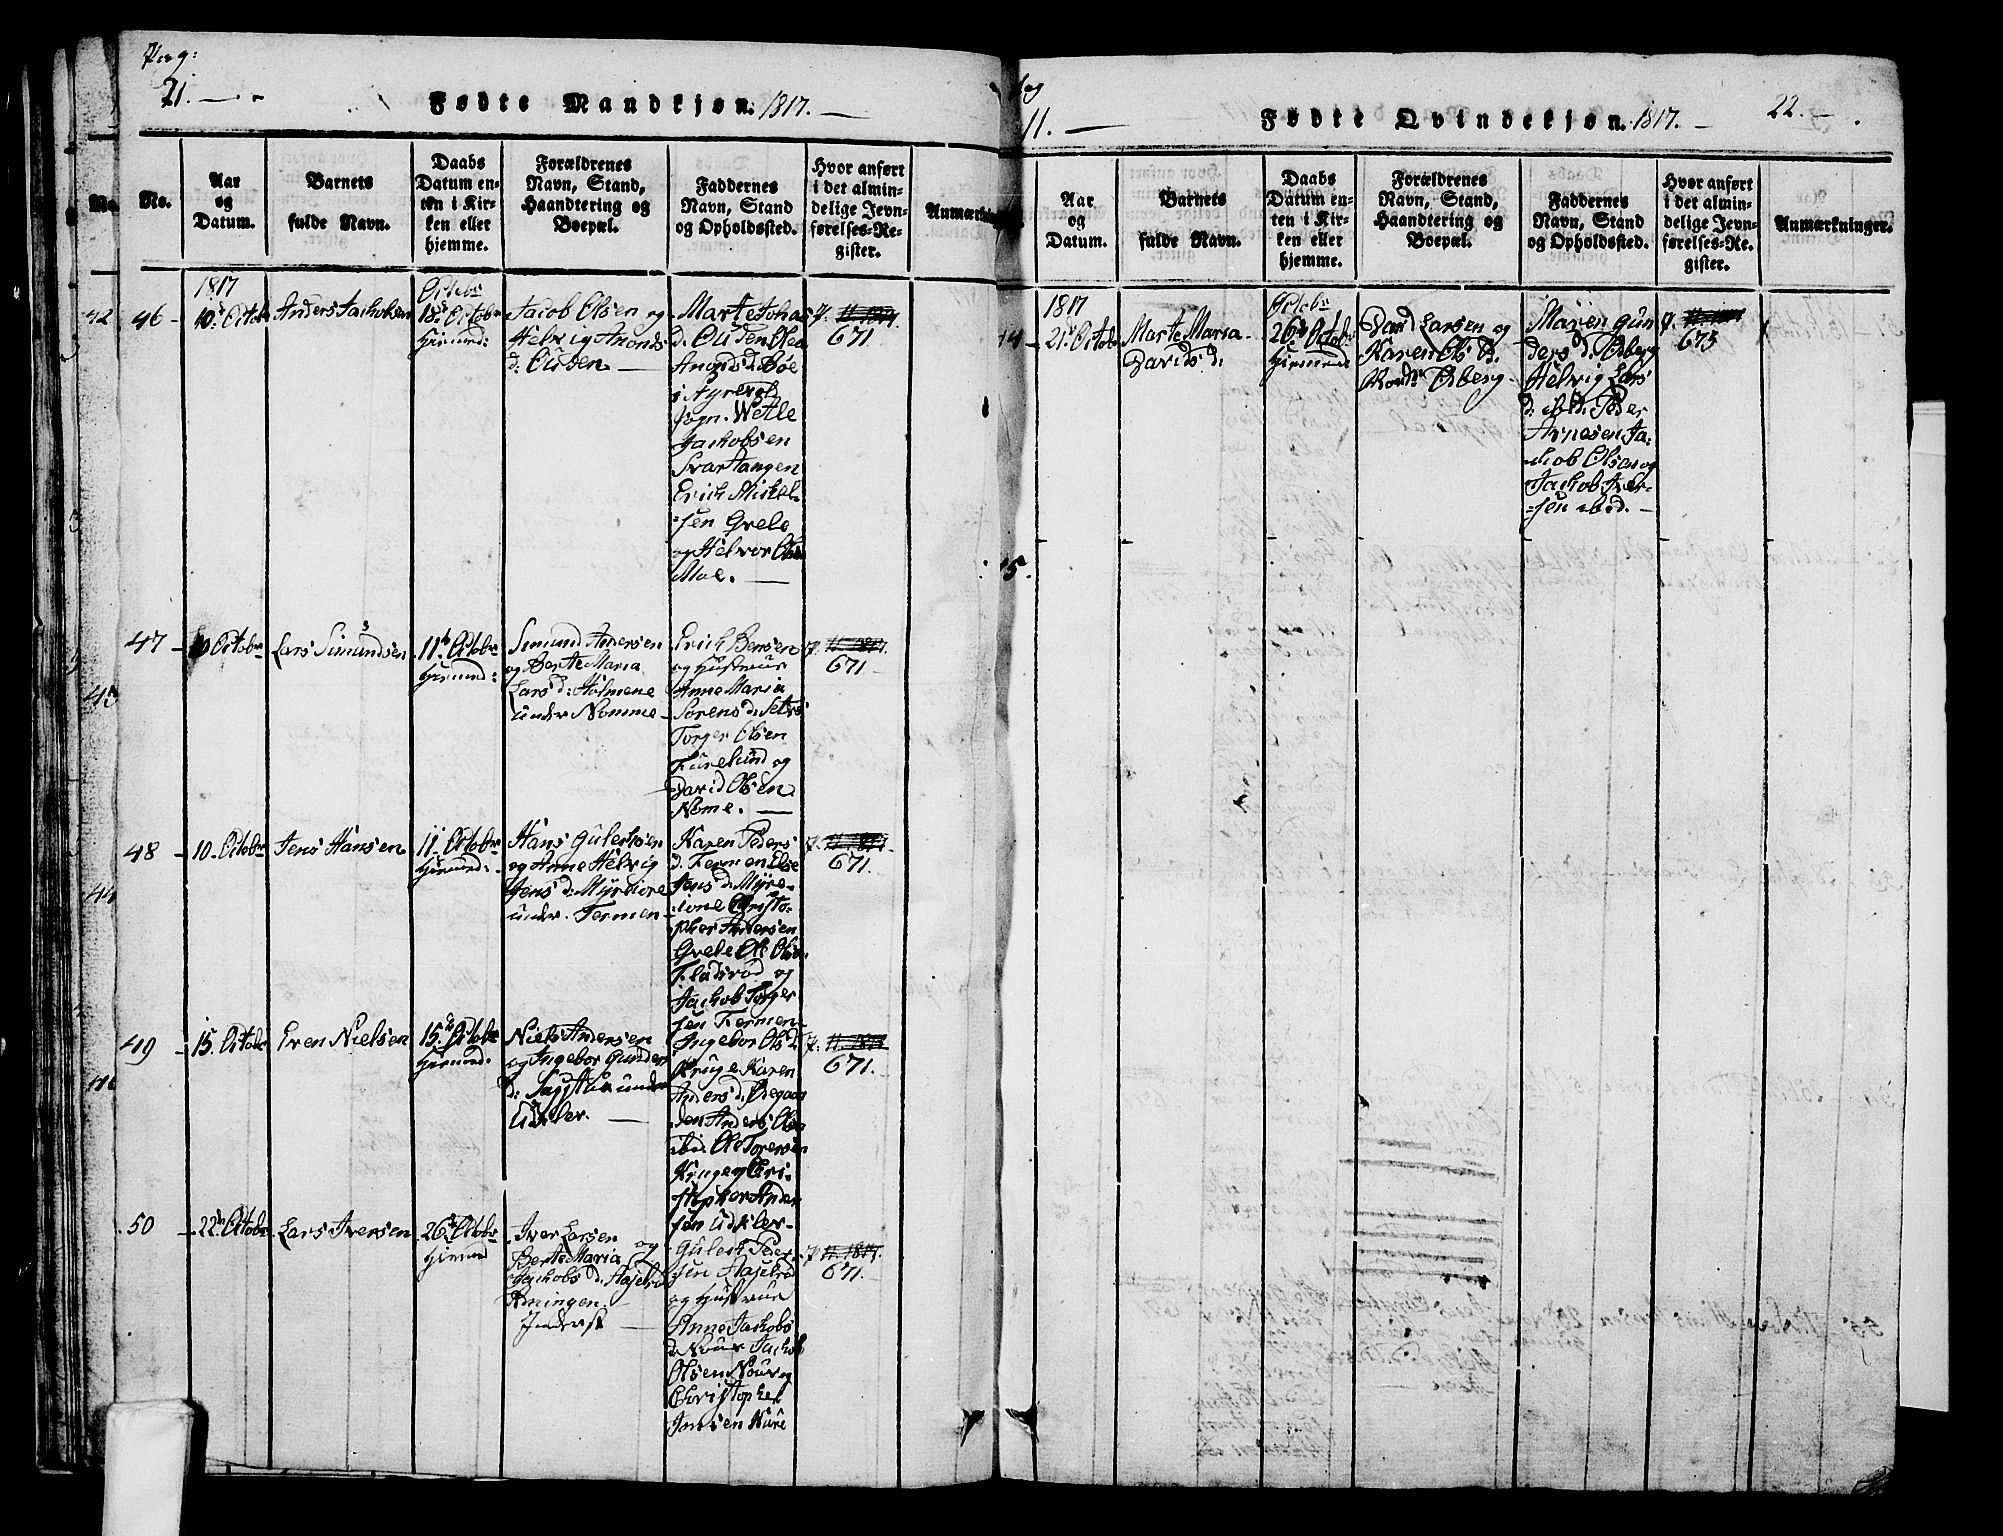 Pag:
21.
Fødte Mandkjøn. 1817.
No.
Aar
og
Datum.
Barnets
fulde Navn.
Daabs
Datum en-
ten i Kir-
ken eller
hjemme.
Forældrenes
Navn, Stand,
Haandtering og
Boepæl.
Faddernes
Navn, Stand
og Opholdssted.
Hvor anført
i det almin-
delige Jevn-
førelses-Re-
gister.
46
1817
10 Octob
Anders Jachobsen
Octobr
18 Octobr
hiemed:
Jacob Olsen og
Helvig Anonds
d: Eusden
Marte Johns
d: Eusden Olea
Anonds d: Bøe
sogn. Wetle
Jachobsen
Svartangen
Erich Mickel-
sen Grele
og Helvor Olsen
Moe.
7.
671.
47
10 Octobr
Lars Simundsen
11 Octobr
hiemed:
Simund Andersen
og Berte Maria
Lars d: Holmene
under Nomme
Erich Bensen
og Hustrue
Anne Maria
Sørens d: Seters
Torger Olsen
Furelund og
David Olsen
Nome.
7.
671
48
10. Octobr
Jens Hansen
11. Octobr
hiemed:
Hans Gulechsen
og Anne Helvig
Jens d: Myretione
under Fermen
Karen Peders
d. Fermen Else
Jens d: Myre-
tione Christo-
pher Andersen
Grele Ole Olsen
Fladsrød og
Jachob Torger
sen Fermen
7.
671.
49
15. Octobr
Even Nielsen
15. Octobr
hiemed:
Niels Andersen
og Ingebor Gunders
d: Sagstuen under
Udkler.
Ingebor Ols d:
Kruge Karen
Anders d: Ødegaar
den Anders Olsen
ibid. Ole Torersen
Kruge og Chri-
stopher Ander
sen Udkler
7.
671.
50
22 Octobr
Lars Iversen
26 Octobr
hiemed
Iver Larsen og
Berte Maria
Jachobs d:
Inderst
Gulech Peder-
sen
og Hustrue
Anne Jachobs
d: Nour Jachob
Olsen Nour og
Christopher
Jansen Nure
7.
671.
11.
Fødte Qvindekjøn. 1817.
22.
Aar
og
Datum.
Barnets
fulde Navn.
Daabs
Datum en-
ten i Kir-
ken eller
hjemme.
Forældrenes
Navn, Stand,
Haandtering og
Boepæl.
Faddernes
Navn, Stand
og Opholdssted.
Hvor anført
i det almin-
delige Jevn-
førelses-Re-
gister.
Anmærkninger.
14
1817
21 Octobr
Marte Maria
Davids d:
Octobr
26 Octobr
hiemed
David Larsen og
Karen Ols d:
Østberg
Maren Gun
ders d: Østberg
Helvig Lars
d: ibd. Peder
Arnesen Ja-
chob Olsen og
Jachob Iver-
sen ibd.
7.
673
15.